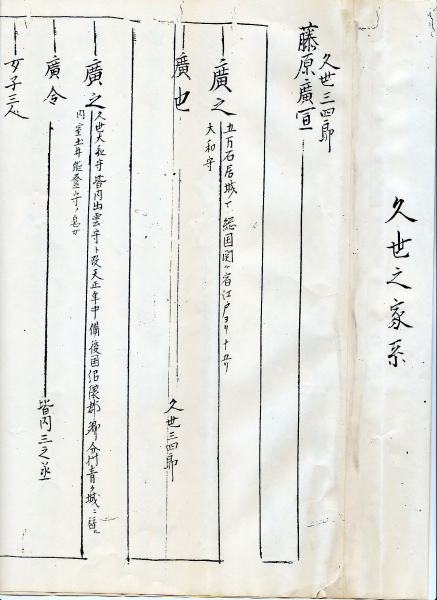 久世之家系
久世三四郎
藤原廣宣
廣之
五万石居城下総国関ケ宿江戸ヨリ十五リ
大和守
廣也
久世三四郎
廣之
久世大和守皆内出雲守ト改天正年中備後国沼隈郡郷分村青ケ城ニ替ル
内室土井能登守ノ息女
廣令
皆内三之丞
女子三人